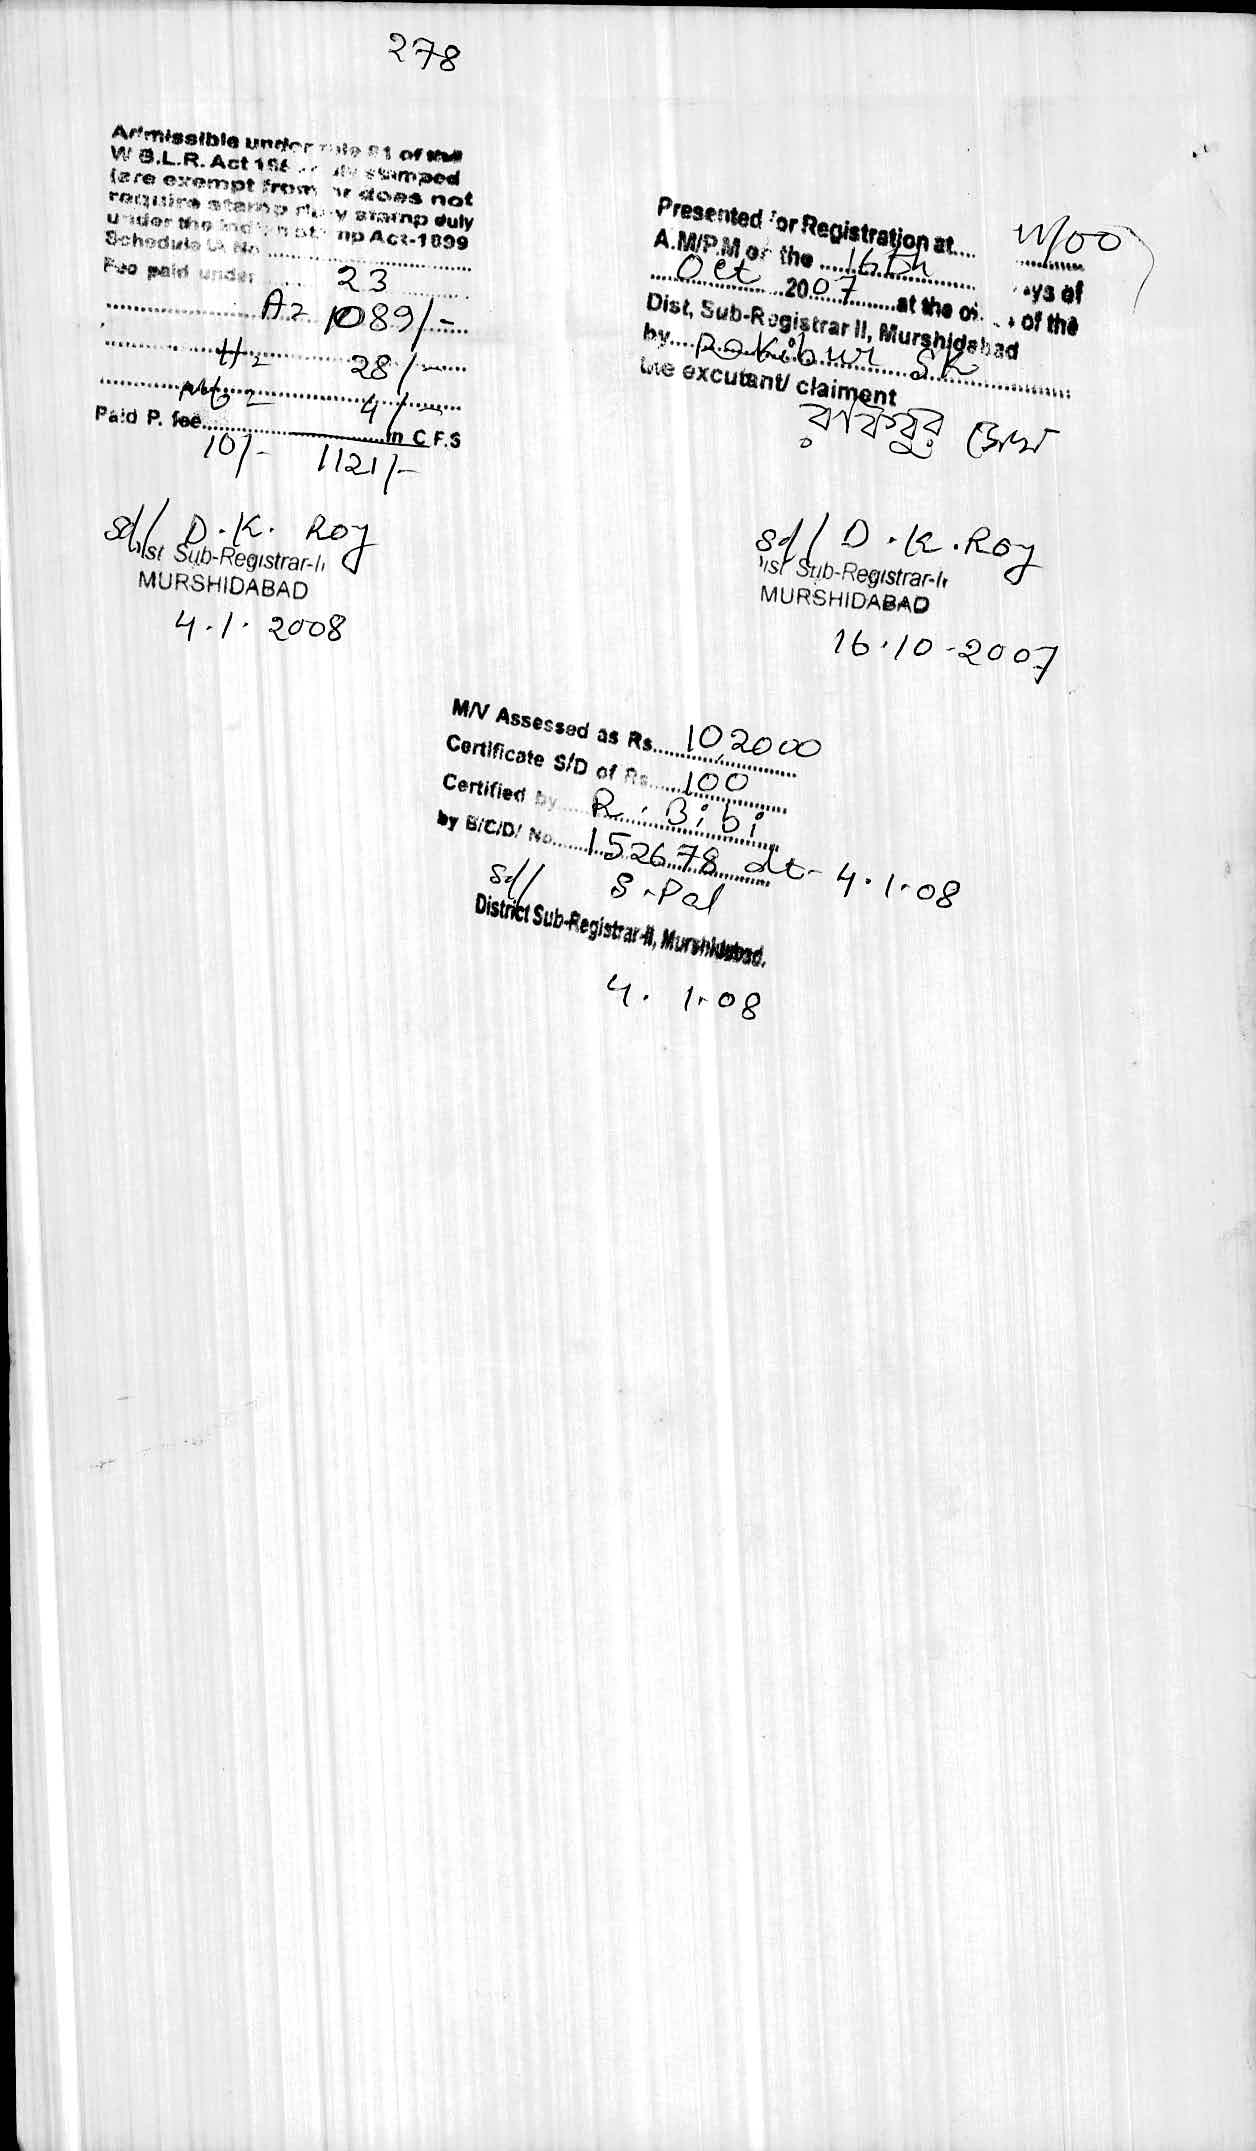 278
Admissible under rule 21 of the
W.B.L.R. Act stamped
(are exempt from or does not
require stamp duty stamp duly
under the Indian Stamp Act-1899
Schedule IA No
Fee paid under
23
A = 1089/-
H = 28/-
4/-
Paid P. fee in C.F.S
10/- 1121/-
sd/ D. K. Roy
Dist Sub-Registrar-II
MURSHIDABAD
4.1.2008
Presented for Registration at 11/00
A.M/P.M of the 16th days of
Oct 2007 at the of the
Dist, Sub-Registrar II, Murshidabad
by Rokibur SK
the excutant/ claiment
রাকিবুর সেখ
sd/ D. K. Roy
Dist Sub-Registrar-II
MURSHIDABAD
16.10-2007
M/V Assessed as Rs 10,2000
Certificate S/D of Rs 100
Certified by R. Bibi
by B/C/D/ No 152678 dt- 4.1.08
sd/ S. Pal
District Sub-Registrar-II, Murshidabad.
4. 1.08